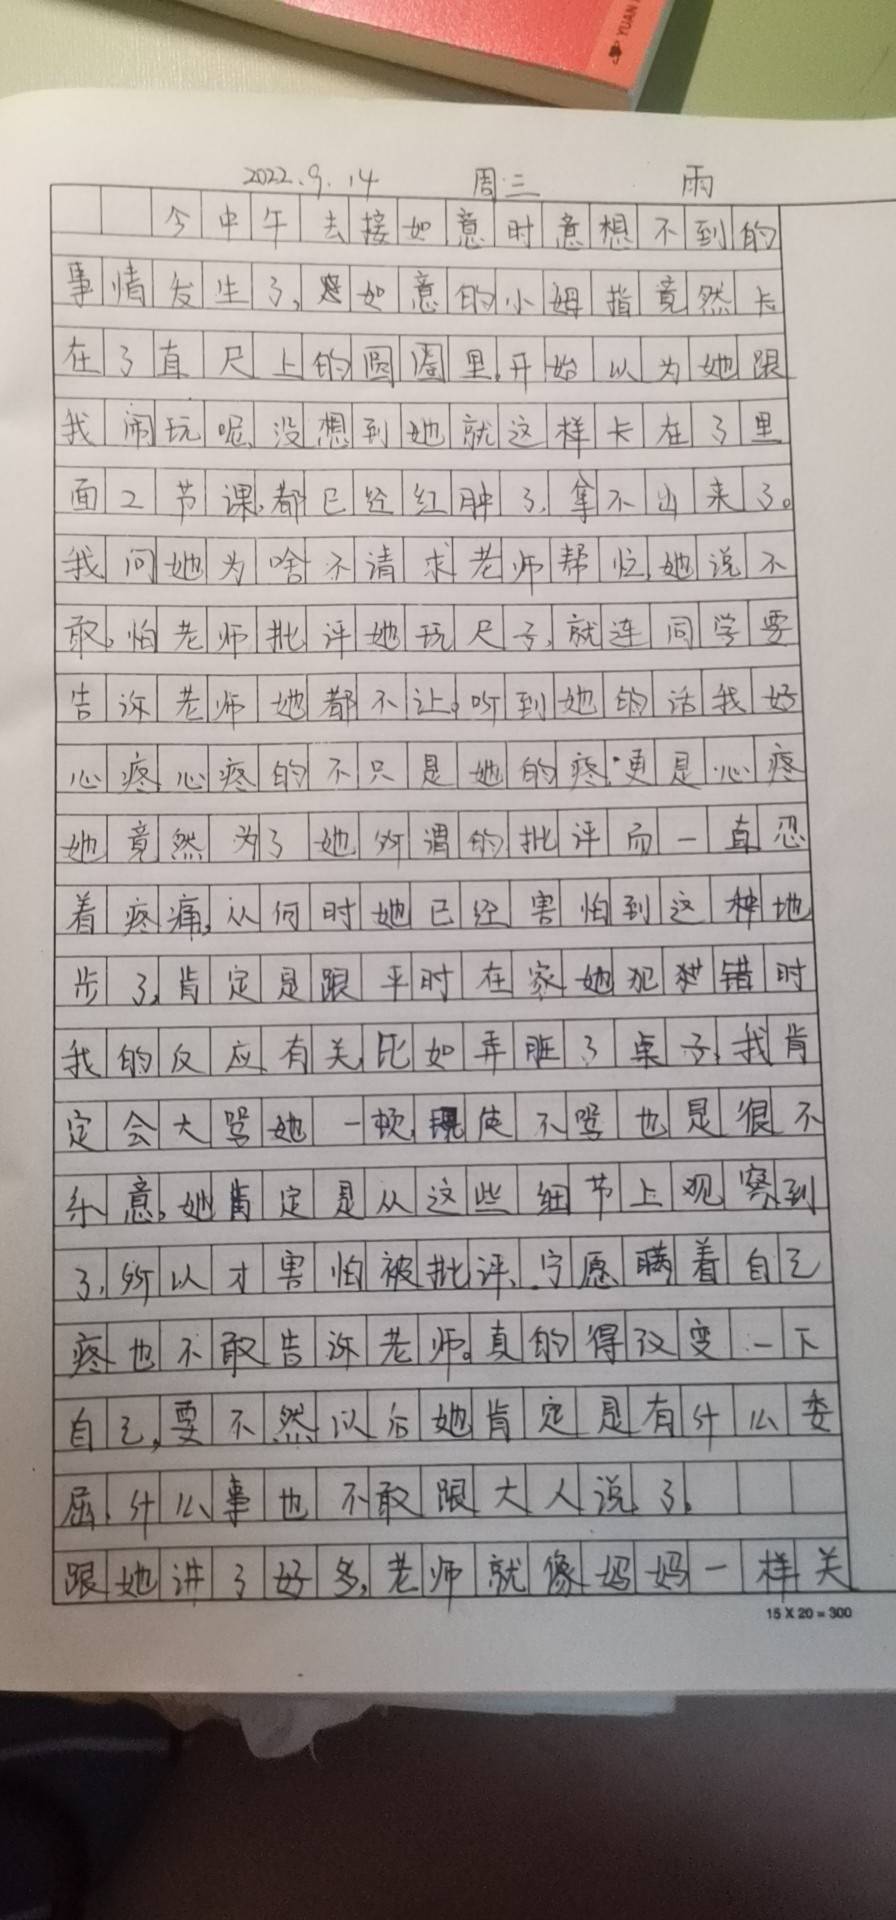 YUAN
2022.9.14 周三 雨
今中午去接如意时意想不到的
事情发生了，如意的小姆指竟然卡
在了直尺上的圆圈里，开始以为她跟
我闹玩呢，没想到她就这样卡在了里
面2节课，都已经红肿了，拿不出来了。
我问她为啥不请求老师帮忙，她说不
敢，怕老师批评她玩尺子，就连同学要
告诉老师她都不让。听到她的话我好
心疼，心疼的不只是她的疼，更是心疼
她竟然为了她所谓的批评而一直忍
着疼痛，从何时她已经害怕到这种地
步了，肯定是跟平时在家她犯错时
我的反应有关，比如弄脏了桌子，我肯
定会大骂她一顿，使不骂也是很不
乐意。她肯定是从这些细节上观察到
了，所以才害怕被批评，宁愿瞒着自己
疼也不敢告诉老师。真的得改变一下
自己，要不然以后她肯定是有什么委
屈、什么事也不敢跟大人说了。
跟她讲了好多，老师就像妈妈一样关
15 X 20 = 300